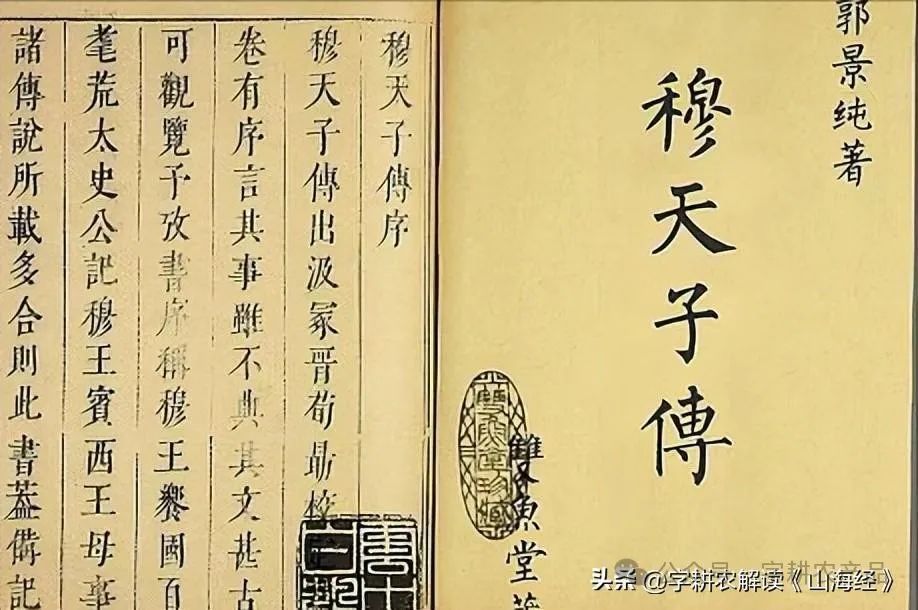 郭景纯著
穆天子傳
雙魚堂
穆天子傳序
穆天子傳出汲冢晋荀勗校
卷有序言其事雖不典其文甚古
可觀覽予攷書序稱穆王饗國百
耄荒太史公記穆王賓西王母事
諸傳說所載多合則此書葢備記
公众号·字耕农产品
头条@字耕农解读《山海经》